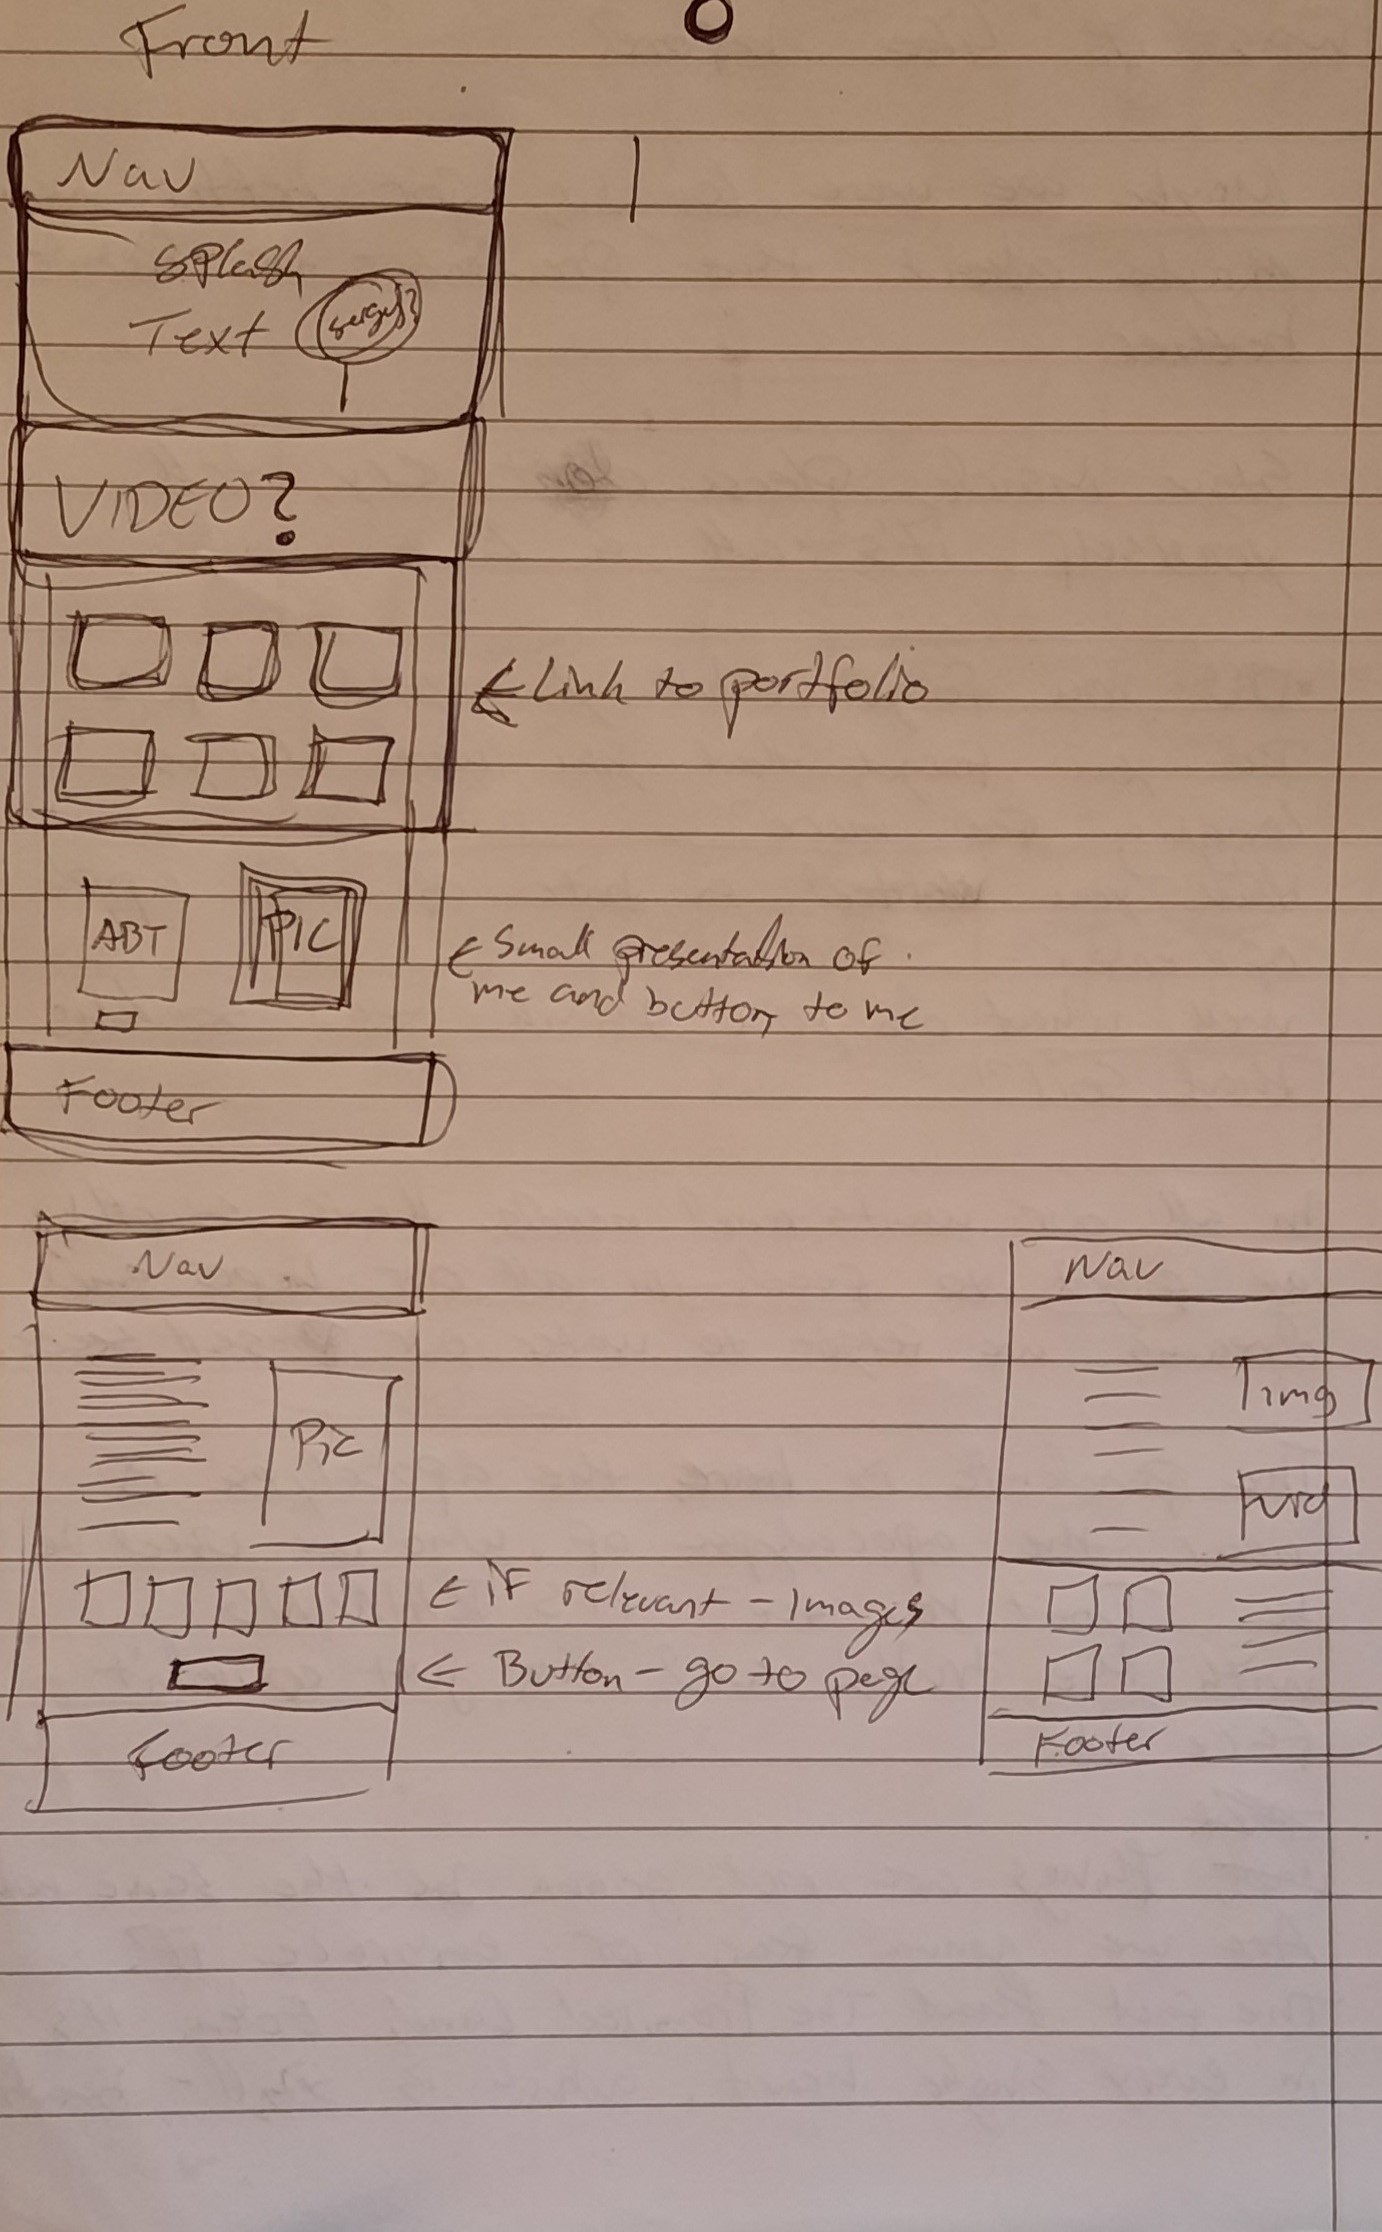 Front
Nav
Splash
Text
VIDEO?
← Link to portfolio
ABT
PIC
← Small presentation of
me and button to me
Footer
Nav
Pic
← iF relevant - Images
← Button - go to page
Footer
Nav
img
Footer